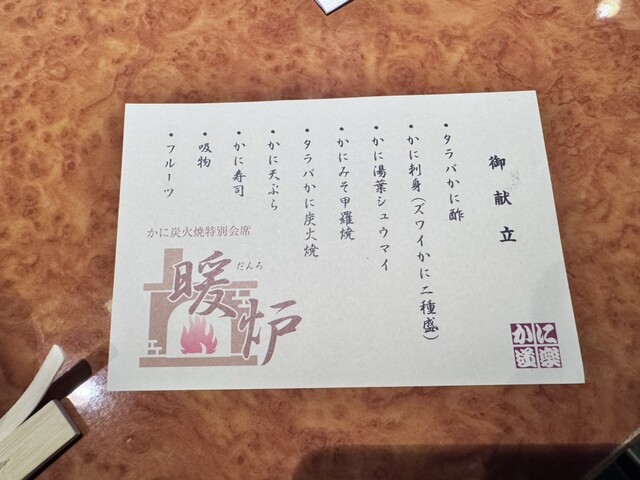 御献立
・タラバかに酢
・かに刺身(ズワイかに二種盛)
・かに湯葉シュウマイ
・かにみそ甲羅焼
・タラバかに炭火焼
・かに天ぷら
・かに寿司
・吸物
・フルーツ
かに炭火焼特別会席
暖炉
だんろ
かに
道楽